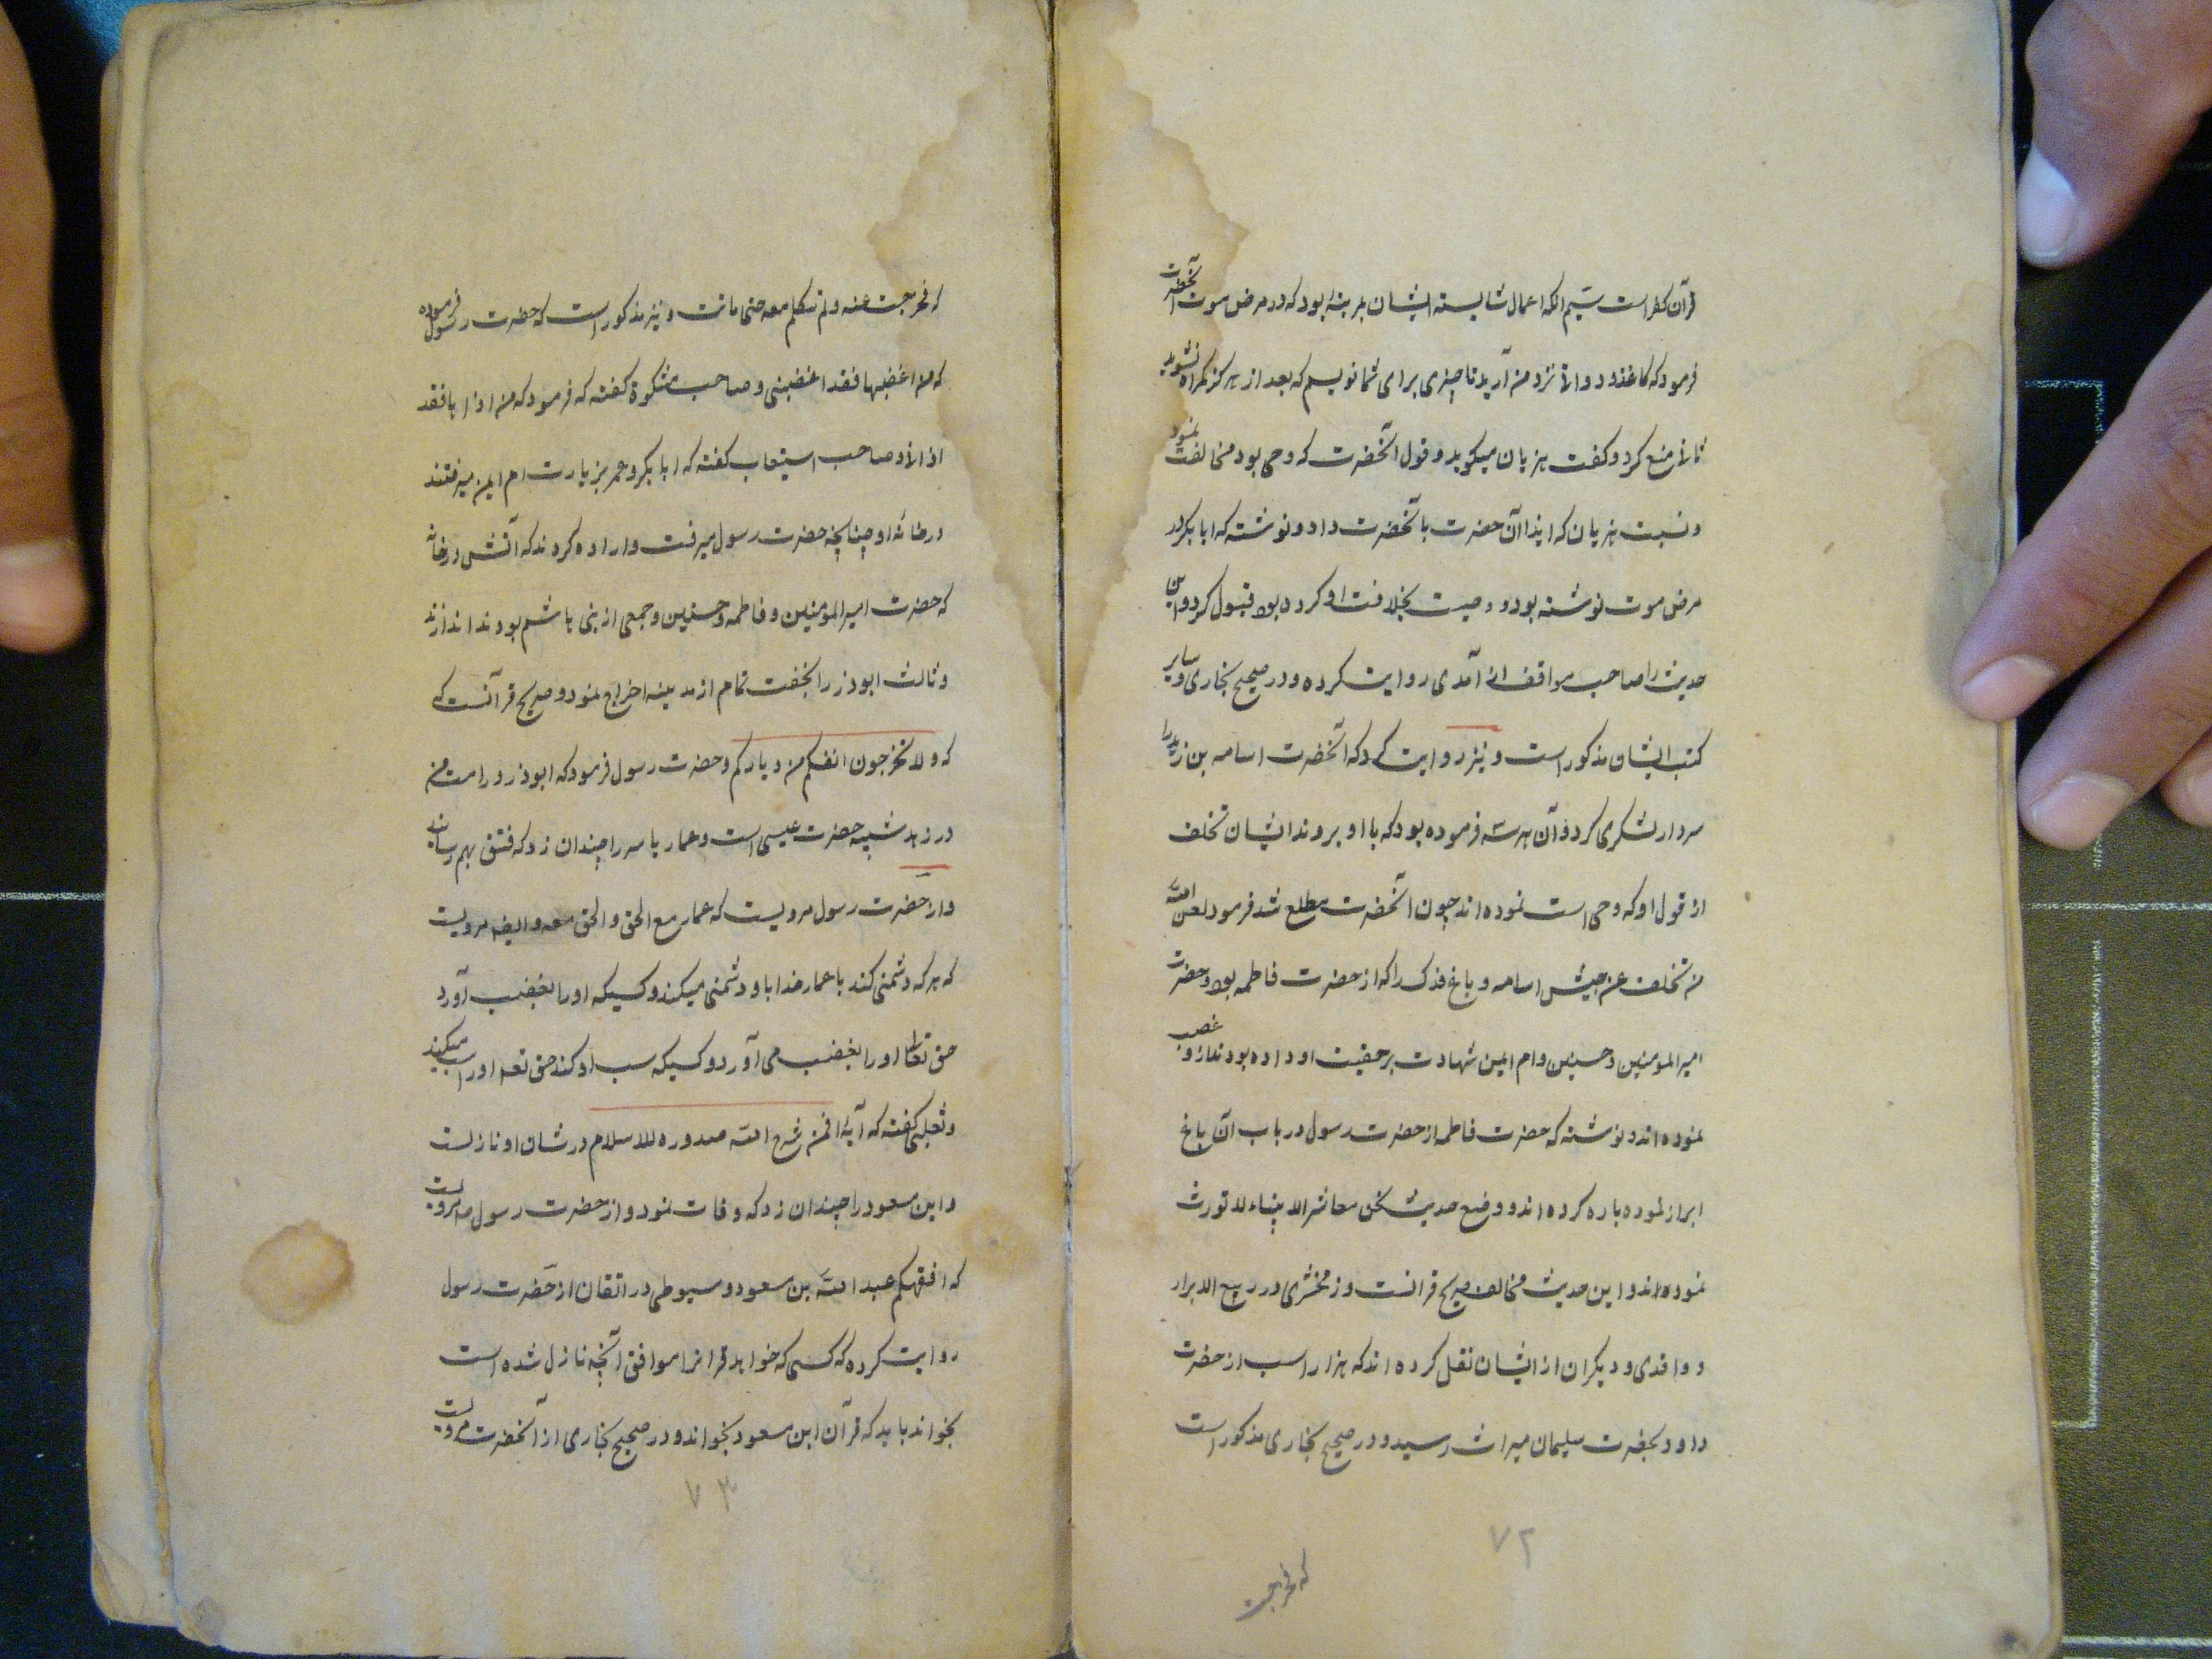 قرآن کفر است سیم انکه اعمال شایسته ایشان بمرتبهٔ بود که در مرض موت آنحضرت
فرمود که کاغذ و دواة نزد من آرید تا چیزی برای شما نویسم که بعد از هرکز کمراه نشوید
ثانی منع کرد و کفت هزیان میکوید و قول آنحضرت که وحی بود مخالفت نمود
و نسبت هزیان که ایذا آن حضرت بآنحضرت داد و نوشته که ابا بکر در
مرض موت نوشته بود و وصیت بخلافت او کرده بود قبول کرد و این
حدیث را صاحب مواقف از آمدی روایت کرده و در صحیح بخاری و سایر
کتب ایشان مذکور است و نیز روایت کرد که آنحضرت اسامه بن زید را
سردار لشکری کرد و آن هر سه فرموده بود که با او بروند ایشان تخلف
از قول او که وحی است نموده اند چون آنحضرت مطلع شد فرمود لعن الله
من تخلف عن جیش اسامه و باغ فدک را که از حضرت فاطمه بود و حضرت
امیر المؤمنین و حسنین و ام ایمن شهادت بر حقیت او داده بودند از و غصب
نموده اند و نوشته که حضرت فاطمه از حضرت رسول در باب آن باغ
ابراز نموده پاره کرده اند و وضع حدیث نحن معاشر الانبیاء لا نورث
نموده اند و این حدیث مخالف صریح قرانست و زمخشری در ربیع الابرار
و واقدی و دیکران از ایشان نقل کرده اند که هزار اسب از حضرت
داود بحضرت سلیمان میراث رسید و در صحیح بخاری مذکور است
۷۲
که فخرجت
که فخرجت عنه و لم تتکلم معه حتی ماتت و نیز مذکور است که حضرت رسول فرموده
که من اغضبها فقد اغضبنی و صاحب مشکوة کفته که فرمود که من اذاها فقد
اذانی و صاحب استیعاب کفته که ابا بکر و عمر بزیارت ام ایمن میرفتند
در خانهٔ او چنانچه حضرت رسول میرفت و اراده کردند که آتش در خانه
که حضرت امیر المؤمنین و فاطمه و حسنین و جمعی از بنی هاشم بودند اندازند
و ثالث ابوذر را بخفت تمام از مدینه اخراج نمود و صریح قرآنست که
که و لا تخرجون انفسکم من دیارکم و حضرت رسول فرمود که ابوذر در امت من
در زهد شبیه حضرت عیسی است و عمار یاسر را چندان زد که فتق بهم رسانید
و از حضرت رسول مرویست که عمار مع الحق و الحق معه و ایضا مرویست
که هر که دشمنی کند با عمار خدا با و دشمنی میکند و کسیکه او را بغضب آورد
حق تعالی او را بغضب می آورد و کسیکه سب او کند حق تعه او را سب میکند
و ثعلبی کفته که آیهٔ افمن شرح الله صدوره للاسلام در شان او نازلست
و ابن مسعود را چندان زد که وفات نمود و از حضرت رسول ص مرویست
که افقهکم عبد الله بن مسعود و سیوطی در اتقان از حضرت رسول
روایت کرده که کسی که خواهد قرانرا موافق آنچه نازل شده است
بخواند باید که قرآن ابن مسعود بخواند و در صحیح بخاری از آنحضرت مرویست
۷۳